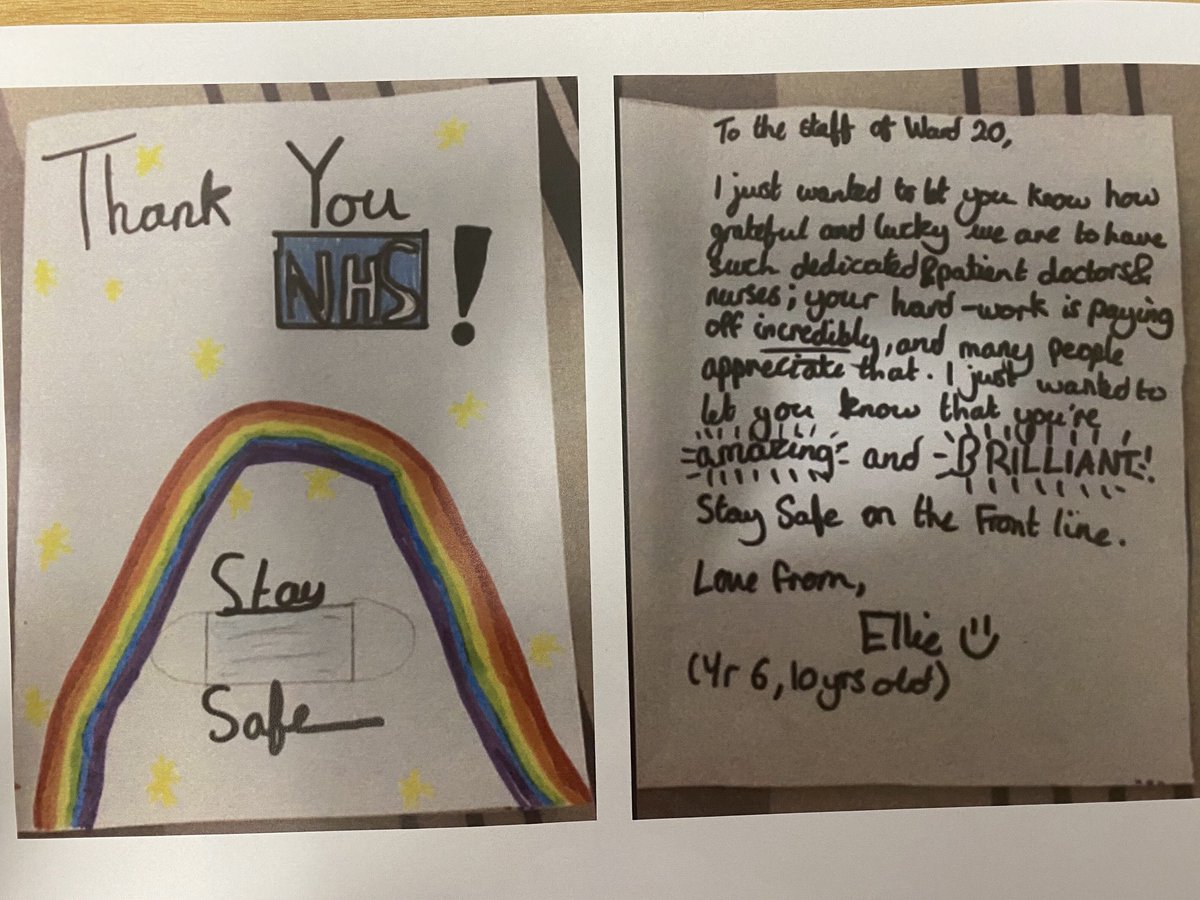 Thank You
NHS!
Stay
Safe
To the staff of Ward 20,
I just wanted to let you know how
grateful and lucky we are to have
such dedicated & patient doctors &
nurses; your hard-work is paying
off incredibly, and many people
appreciate that. I just wanted to
let you know that you're
amazing and BRILLIANT!
Stay Safe on the Front line.
Love from,
Ellie
(Yr 6, 10yrs old)